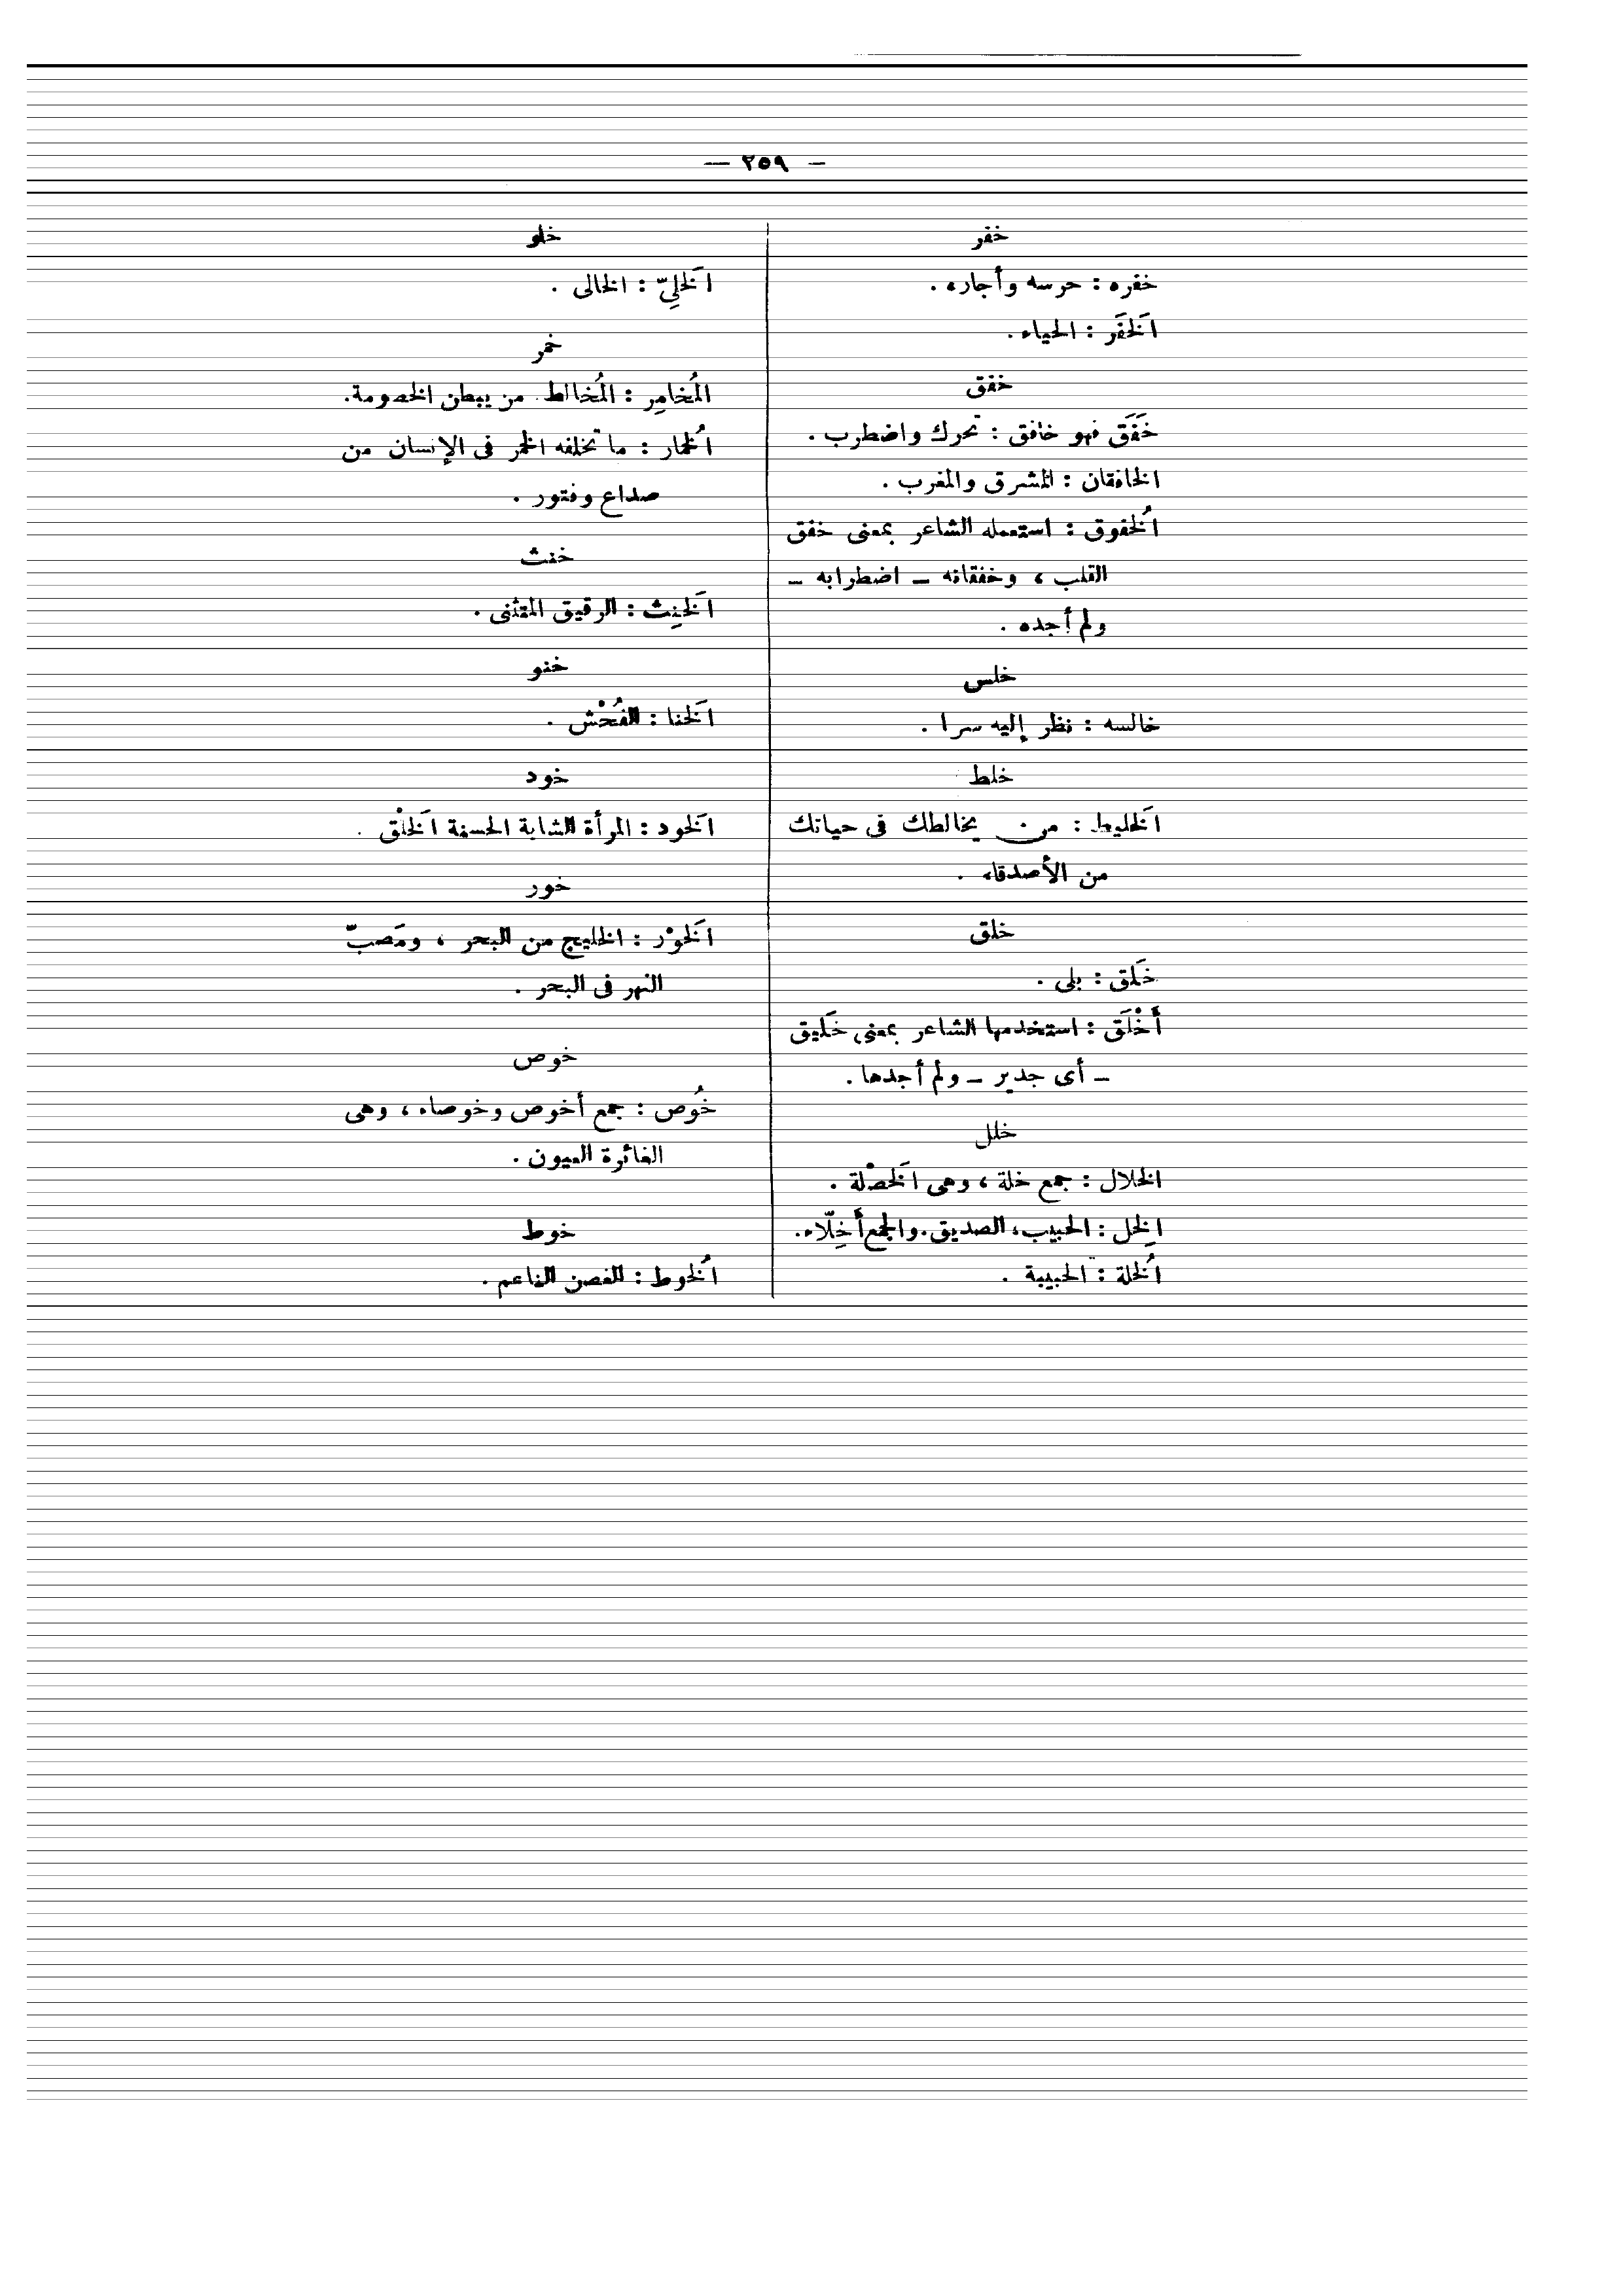 — ٢٥٩ —
خفر
خفره : حرسه وأجاره .
الَخفَر : الحياء .
خفق
خَفَقَ فهو خافق : تحرك واضطرب .
الخافقان : المشرق والمغرب .
الُخفوق : استعمله الشاعر بمعنى خفق
القلب ، وخفقانه – اضطرابه –
ولم أجده .
خلس
خالسه : نظر إليه سرا .
خلط
الَخليط : من يخالطك فى حياتك
من الأصدقاء .
خلق
خَلَق : بلى .
أَخْلَق : استخدمها الشاعر بمعنى خَليق
– أى جدير – ولم أجدها .
خلل
الخلال : جمع خلة ، وهى الَخصْلة .
الِخل : الحبيب ، الصديق . والجمع أَخِلّاء .
الُخلة : الحبيبة .
خلو
الَخلِىّ : الخالى .
خمر
المُخامِر : المُخالط . من يبطن الخصومة .
الُخمار : ما تخلفه الخمر فى الإنسان من
صداع وفتور .
خنث
الَخنِث : الرقيق المتثنى .
خنو
الَخنا : الفُحْش .
خود
الَخود : المرأة الشابة الحسنة الَخلْق .
خور
الَخوْر : الخليج من البحر ، ومَصبّ
النهر فى البحر .
خوص
خُوص : جمع أخوص وخوصاء ، وهى
الغائرة العيون .
خوط
الُخوط : الغصن الناعم .